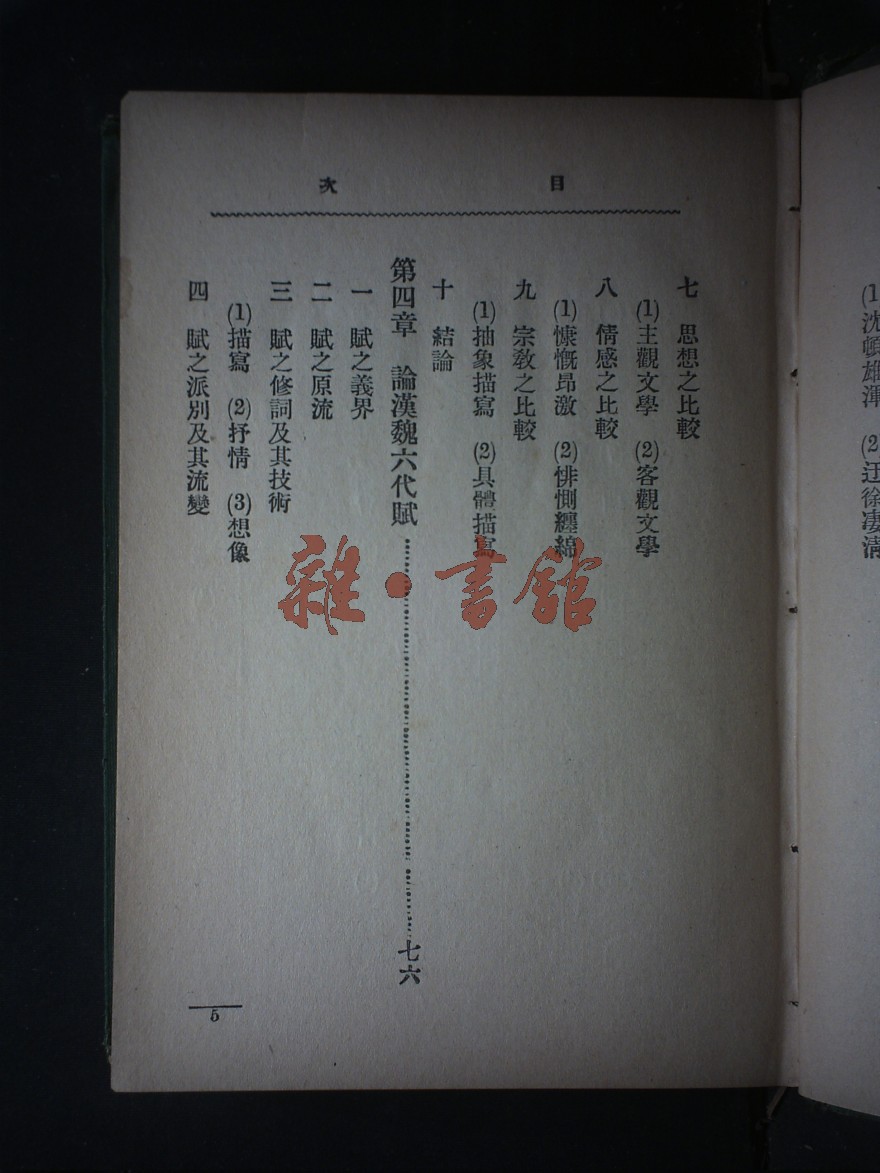 目次
七 思想之比較
(1)主觀文學 (2)客觀文學
八 情感之比較
(1)慷慨昂激 (2)悱惻纏綿
九 宗教之比較
(1)抽象描寫 (2)具體描寫
十 結論
第四章 論漢魏六代賦 七六
一 賦之義界
二 賦之原流
三 賦之修詞及其技術
(1)描寫 (2)抒情 (3)想像
四 賦之派別及其流變
5
(1)沈頓雄渾 (2)迂徐凄清
雜·書館